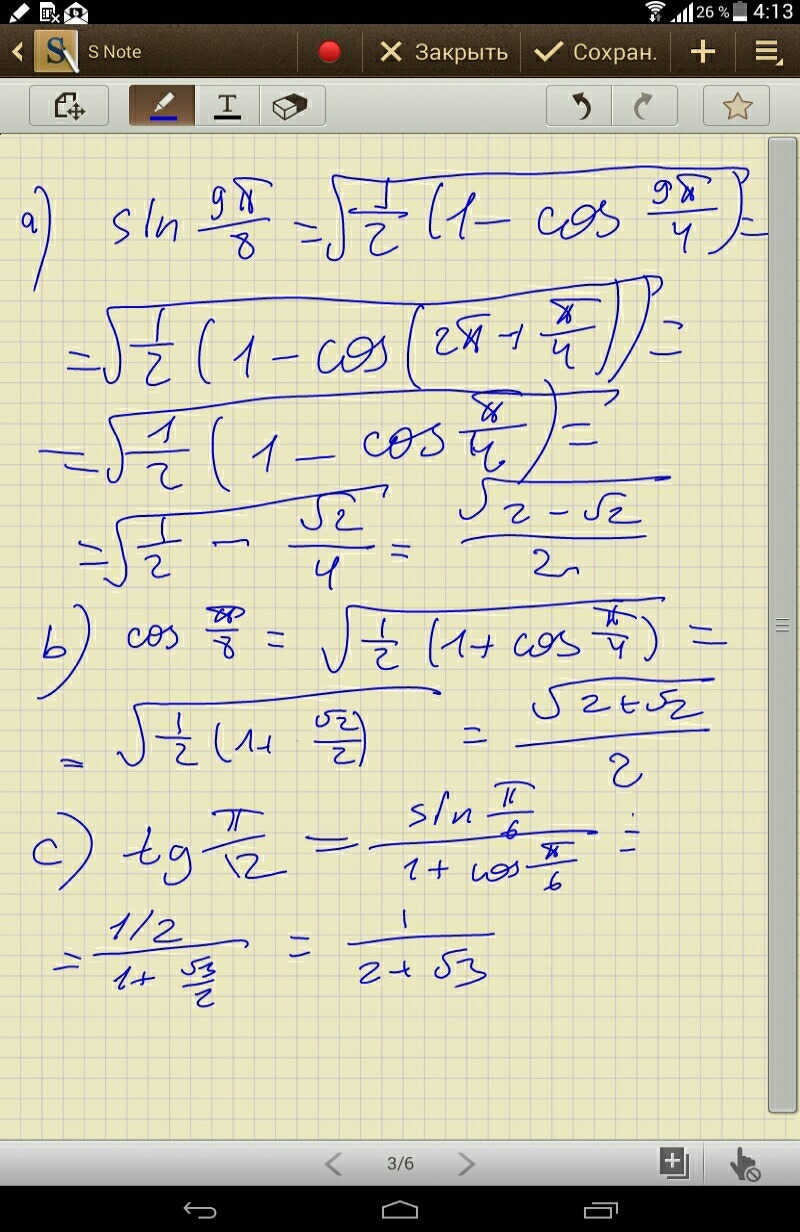 26 % 4:13
S Note Закрыть Сохран.
T
a) sin 9π/8 = √(1/2 (1 - cos 9π/4)) =
= √(1/2 (1 - cos(2π + π/4))) =
= √(1/2 (1 - cos π/4)) =
= √(1/2 - √2/4) = √(2 - √2)/2
b) cos π/8 = √(1/2 (1 + cos π/4)) =
= √(1/2 (1 + √2/2)) = √(2 + √2)/2
c) tg π/12 = sin π/6 / (1 + cos π/6) =
= 1/2 / (1 + √3/2) = 1/(2 + √3)
3/6